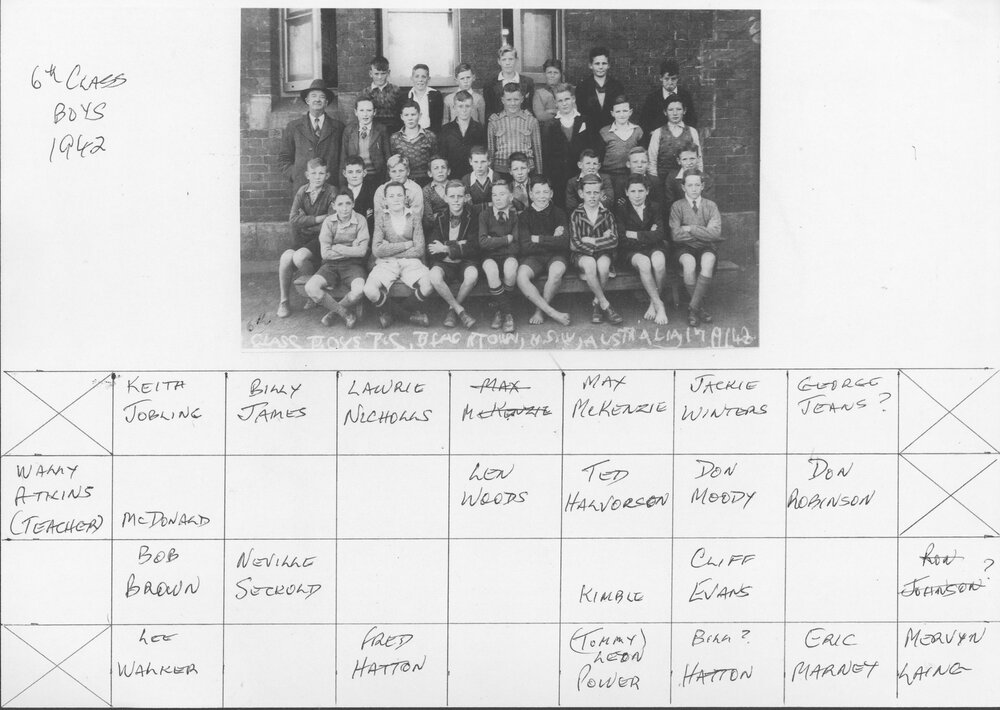 6th CLASS
BOYS
1942
6th
CLASS BOYS P.S, BLACKTOWN, N.S.W, AUSTRALIA, 1942
KEITH
JOBLING
BILLY
JAMES
LAWRIE
NICHOLLS
MAX
MCKENZIE
MAX
MCKENZIE
JACKIE
WINTERS
GEORGE
JEANS?
WALLY
ATKINS
(TEACHER)
MCDONALD
LEN
WOODS
TED
HALVORSEN
DON
MOODY
DON
ROBINSON
BOB
BROWN
NEVILLE
SECKOLD
KIMBLE
CLIFF
EVANS
RON ?
JOHNSON
LEE
WALKER
FRED
HATTON
(TOMMY)
LEON
POWER
BILL?
HATTON
ERIC
MARNEY
MERVYN
LAING